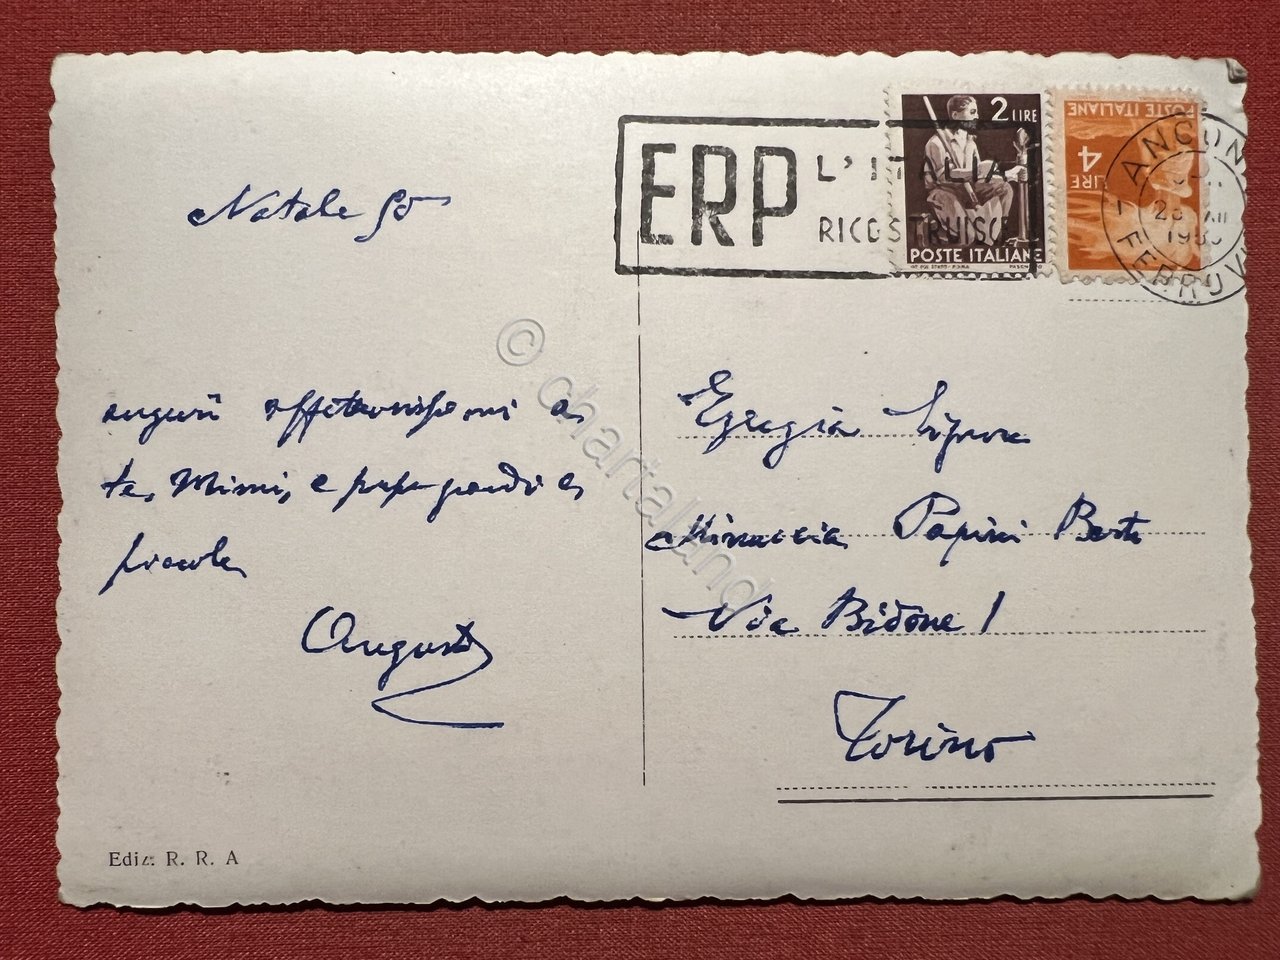 Natale 50
auguri affettuosissimi a
te, Mimi, e papà grandi e
piccole
Augusto
Ediz. R. R. A
ERP L'ITALIA
RICOSTRUISCE
2 LIRE
POSTE ITALIANE
POSTE ITALIANE
LIRE 4
ANCONA
XII
FERROVIA
Egregia Signora
Papini Berti
Via Bidone 1
Torino
© chartaland